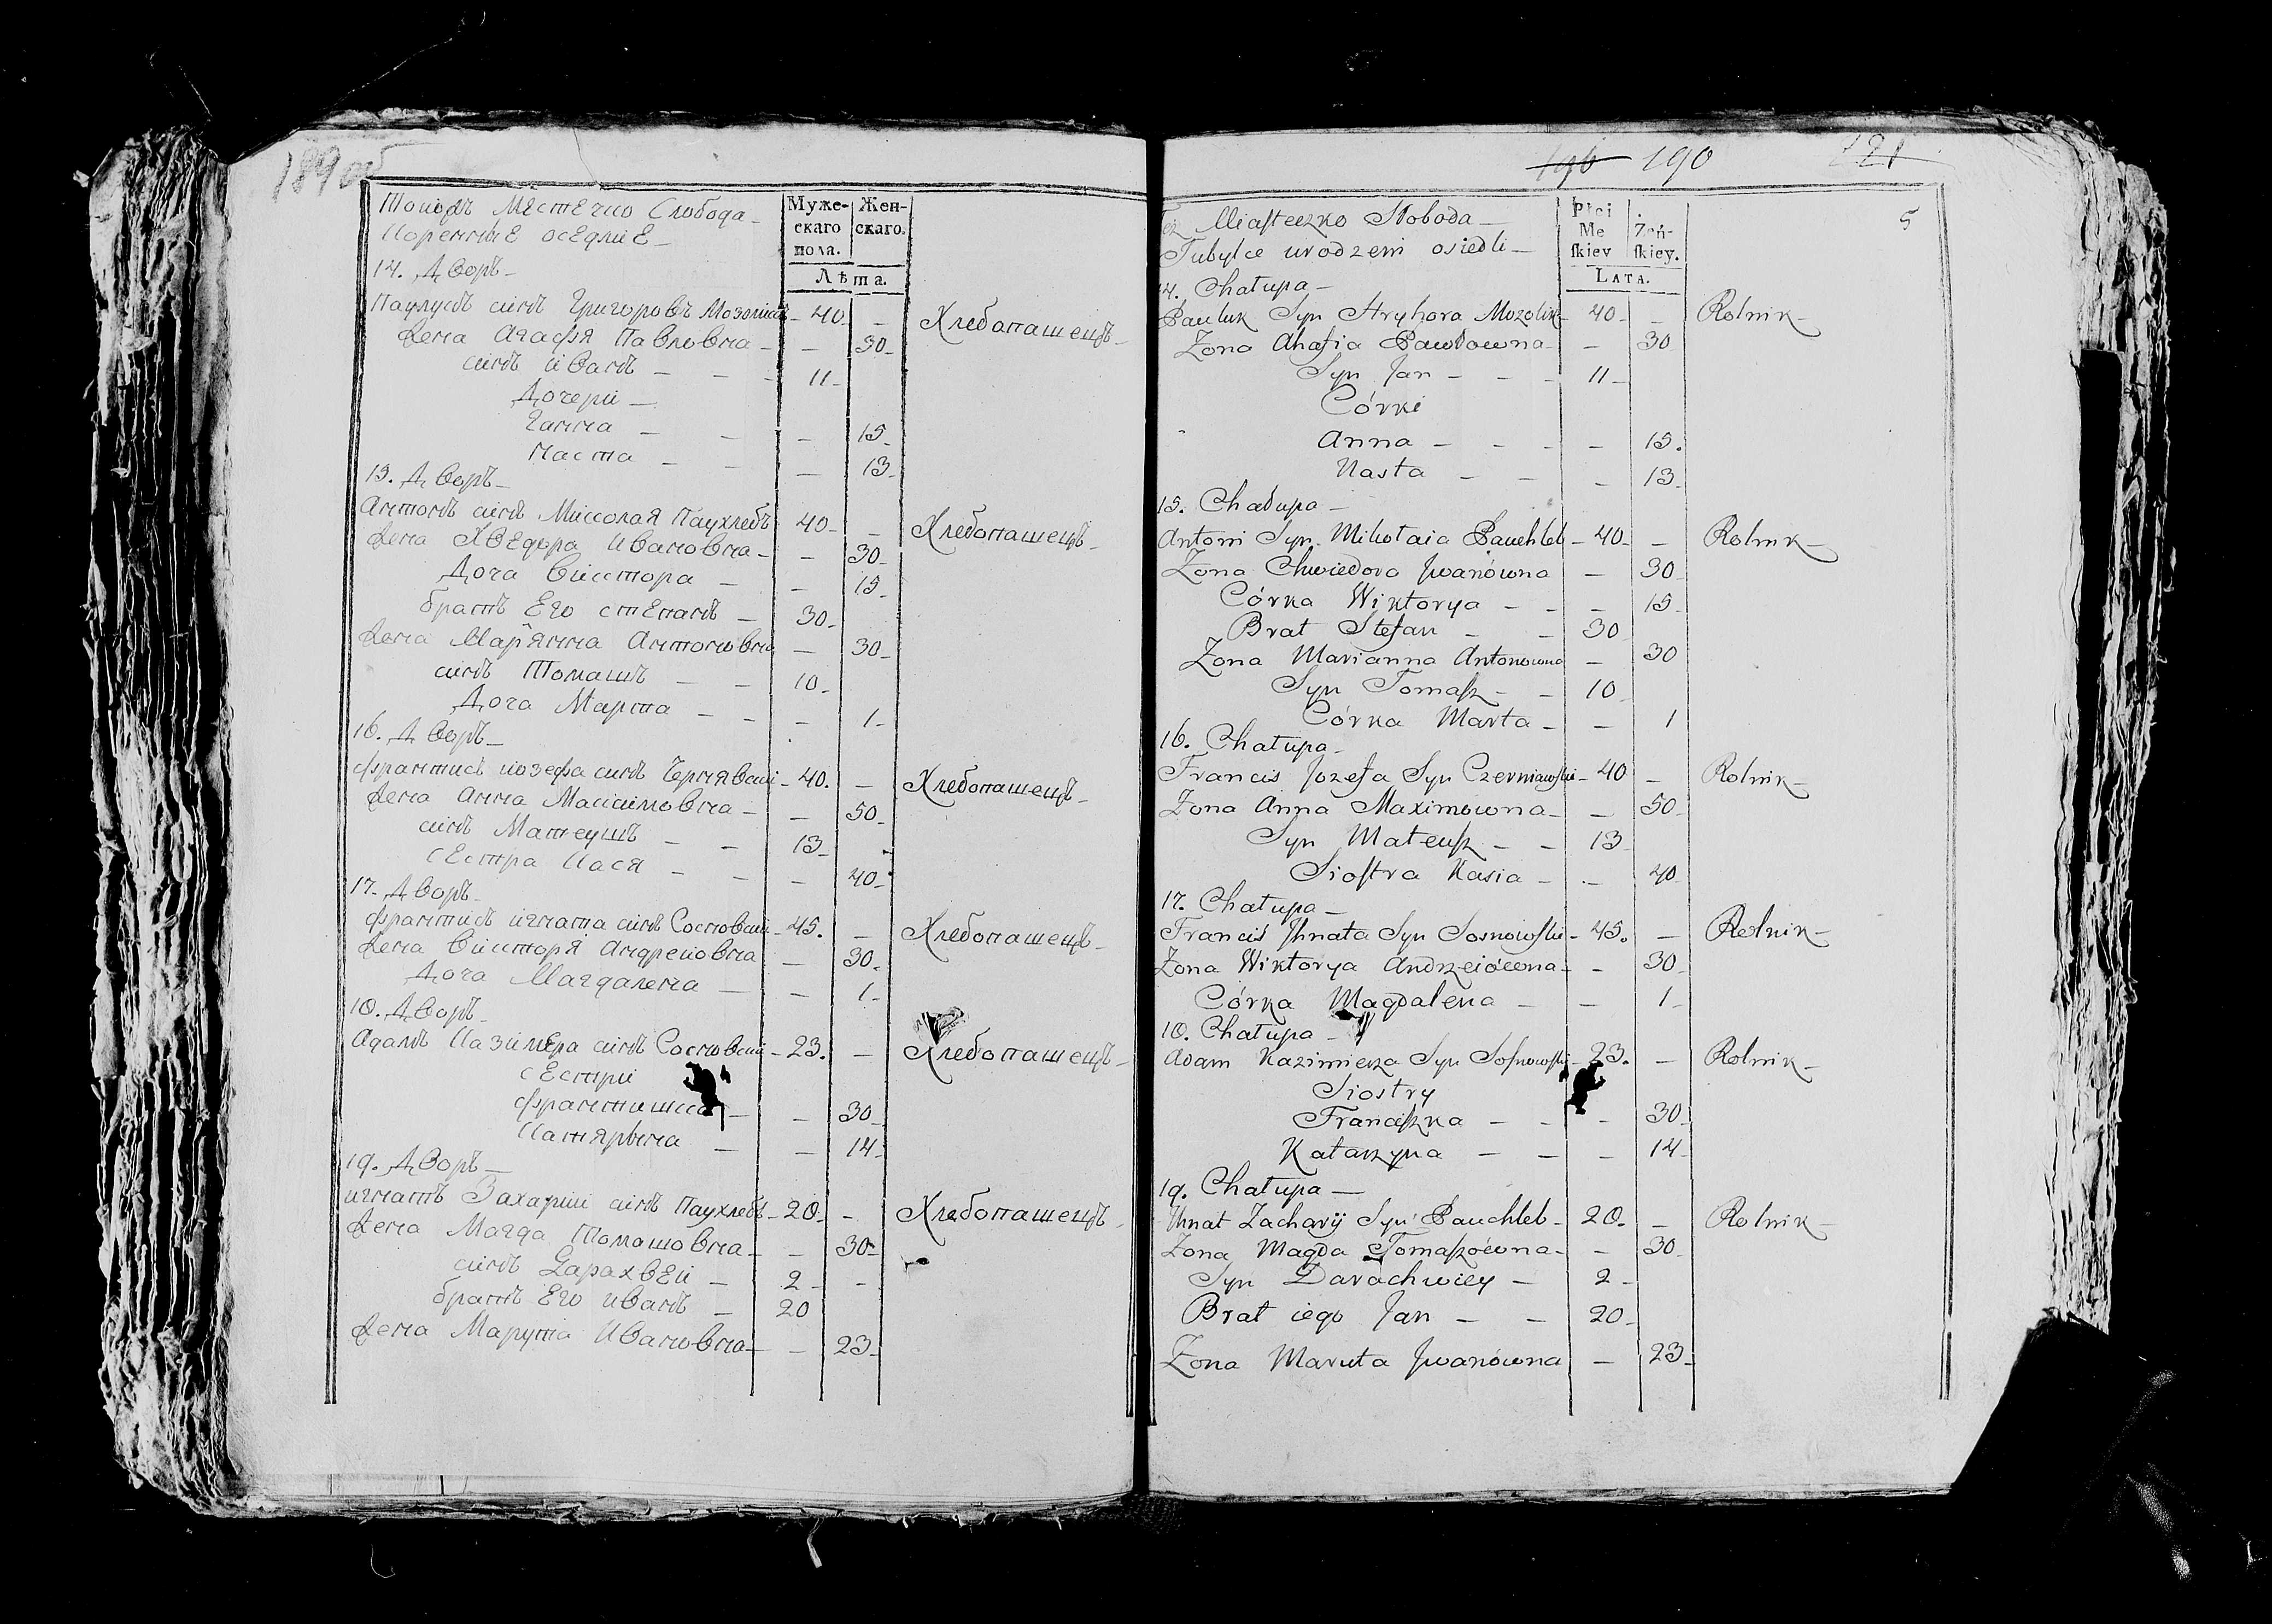 189 об
Тойжъ Местечко Слобода
Коренные оседлые
Муже-
скаго
пола.
Жен-
скаго.
Лѣта.
14. Дворъ
Паулукъ сынъ Григоровъ Мозолик 40 — Хлебопашецъ
жена Агафя Павловна — 30
сынъ иванъ — 11
Дочери
Ганна — 15
Наста — 13
15. Дворъ
Антонъ сынъ Миколая Паухлебъ 40 — Хлебопашецъ
жена Хведора Ивановна — 30
Доча Виктора — 15
братъ Его степанъ — 30
жена Марянна Антоновна — 30
сынъ Томашъ — 10
Доча Марта — 1
16. Дворъ
франтишъ иозефа сынъ Чернявски 40. — Хлебопашецъ
жена Анна Максимовна — 50
сынъ Матеушъ — 13
сЕстра Кася — 40
17. Дворъ
франтишъ игната сынъ Сосновски 45. — Хлебопашецъ
жена Викторя Андреиовна — 30
Доча Магдалена — 1
18. Дворъ
Адамъ Казимера сынъ Сосновски 23. — Хлебопашецъ
сЕстры
франтишка — 30
Катярына — 14
19. Дворъ
игнатъ Захарыи сынъ Паухлебъ 28 — Хлебопашецъ
жена Магда Томашовна — 30
сынъ Дарахвеи — 2
братъ Его иванъ — 20
жена Марута Ивановна — 23
196 190 121
5
Miasteczko Słoboda
Tubylce urodzeni osiedli
Płci
Me
skiey
Zeń-
skiey.
LATA.
14. Chałupa
Pauluk Syn Hryhora Mozolik 40 — Rolnik
Żona Ahafia Pawłowna — 30
Syn Jan — 11
Córki
Anna — 15.
Nasta — 13
15. Chałupa
Antoni Syn Mikołaia Pauchleb 40 — Rolnik
Żona Chwiedora Jwanówna — 30
Córka Wiktorya — 15
Brat Stefan — 30
Żona Marianna Antonowna — 30
Syn Tomasz — 10
Córka Marta — 1
16. Chałupa
Francis Jozefa Syn Czerniawski 40 — Rolnik
Żona Anna Maximowna — 50
Syn Mateusz — 13
Siostra Kasia — 40
17. Chałupa
Francis Jhnata Syn Sosnowski 45. — Rolnik
Żona Wiktorya Andrzeiówna — 30
Córka Magdalena — 1
18. Chałupa
Adam Kazimierza Syn Sosnowski 23. — Rolnik
Siostry
Franciszka — 30
Katarzyna — 14
19. Chałupa
Jhnat Zacharÿ Syn Pauchleb 28. — Rolnik
Żona Magda Tomaszówna — 30
Syn Darachwiey — 2
Brat iego Jan — 20
Żona Maruta Jwanówna — 23